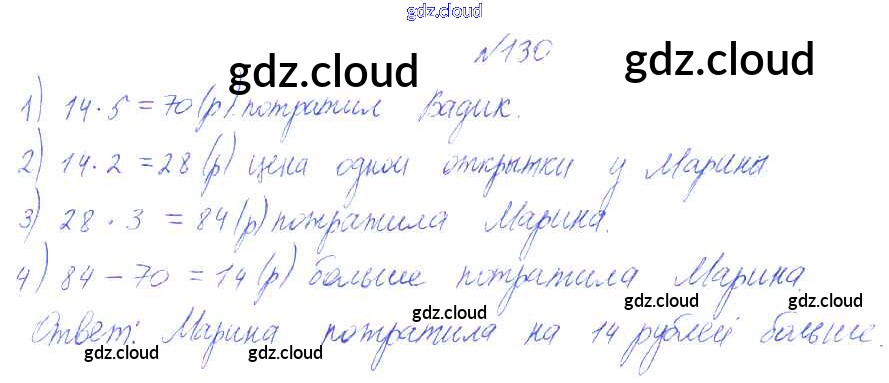 gdz.cloud
№130
gdz.cloud
gdz.cloud
1) 14·5=70(р) потратил Вадик.
2) 14·2=28(р) цена одной открытки у Марины
3) 28·3=84(р) потратила Марина.
4) 84-70=14(р) больше потратила Марина.
gdz.cloud
gdz.cloud
Ответ: Марина потратила на 14 рублей больше.
gdz.cloud
gdz.cloud
gdz.cloud